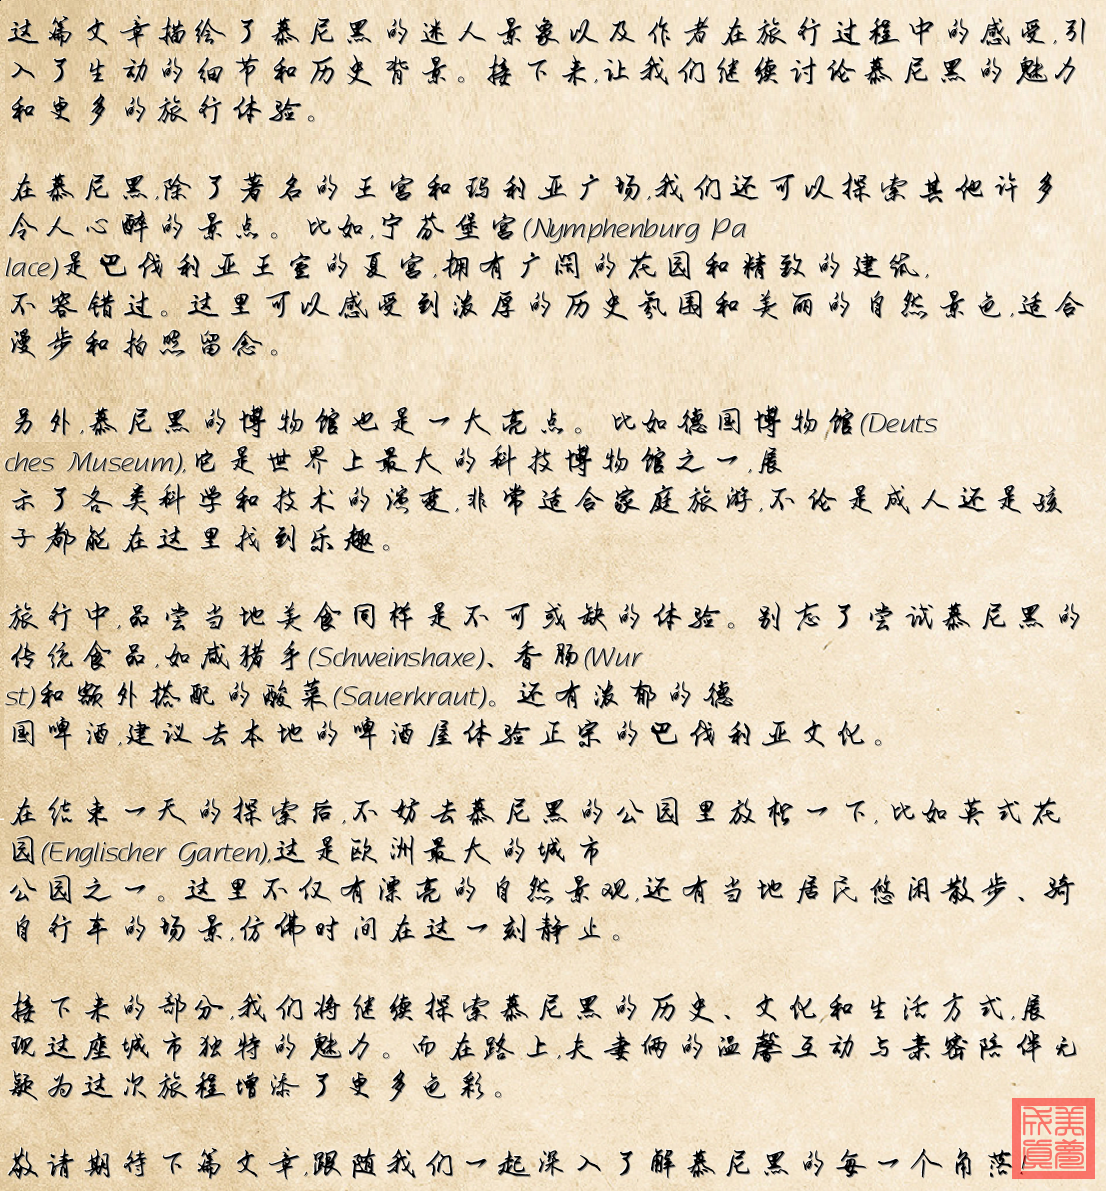 这篇文章描绘了慕尼黑的迷人景象以及作者在旅行过程中的感受,引
入了生动的细节和历史背景。接下来,让我们继续讨论慕尼黑的魅力
和更多的旅行体验。
在慕尼黑,除了著名的王宫和玛利亚广场,我们还可以探索其他许多
令人心醉的景点。比如,宁芬堡宫(Nymphenburg Pa
lace)是巴伐利亚王室的夏宫,拥有广阔的花园和精致的建筑,
不容错过。这里可以感受到浓厚的历史氛围和美丽的自然景色,适合
漫步和拍照留念。
另外,慕尼黑的博物馆也是一大亮点。比如德国博物馆(Deuts
ches Museum),它是世界上最大的科技博物馆之一,展
示了各类科学和技术的演变,非常适合家庭旅游,不论是成人还是孩
子都能在这里找到乐趣。
旅行中,品尝当地美食同样是不可或缺的体验。别忘了尝试慕尼黑的
传统食品,如咸猪手(Schweinshaxe)、香肠(Wur
st)和额外搭配的酸菜(Sauerkraut)。还有浓郁的德
国啤酒,建议去本地的啤酒屋体验正宗的巴伐利亚文化。
在结束一天的探索后,不妨去慕尼黑的公园里放松一下,比如英式花
园(Englischer Garten),这是欧洲最大的城市
公园之一。这里不仅有漂亮的自然景观,还有当地居民悠闲散步、骑
自行车的场景,仿佛时间在这一刻静止。
接下来的部分,我们将继续探索慕尼黑的历史、文化和生活方式,展
现这座城市独特的魅力。而在路上,夫妻俩的温馨互动与亲密陪伴无
疑为这次旅程增添了更多色彩。
敬请期待下篇文章,跟随我们一起深入了解慕尼黑的每一个角落!